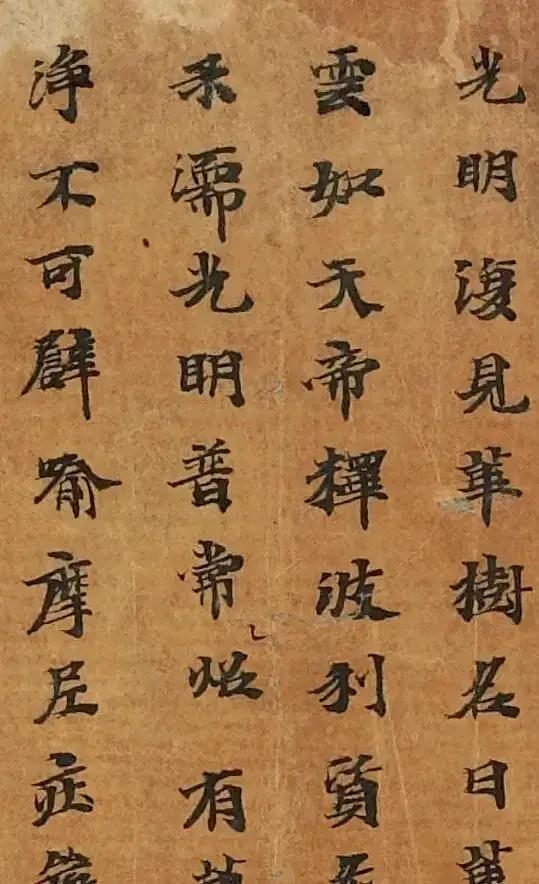 光明復見華樹名曰
雲如天帝釋波利質
柔濡光明普常有
浄不可譬喻摩尼莊